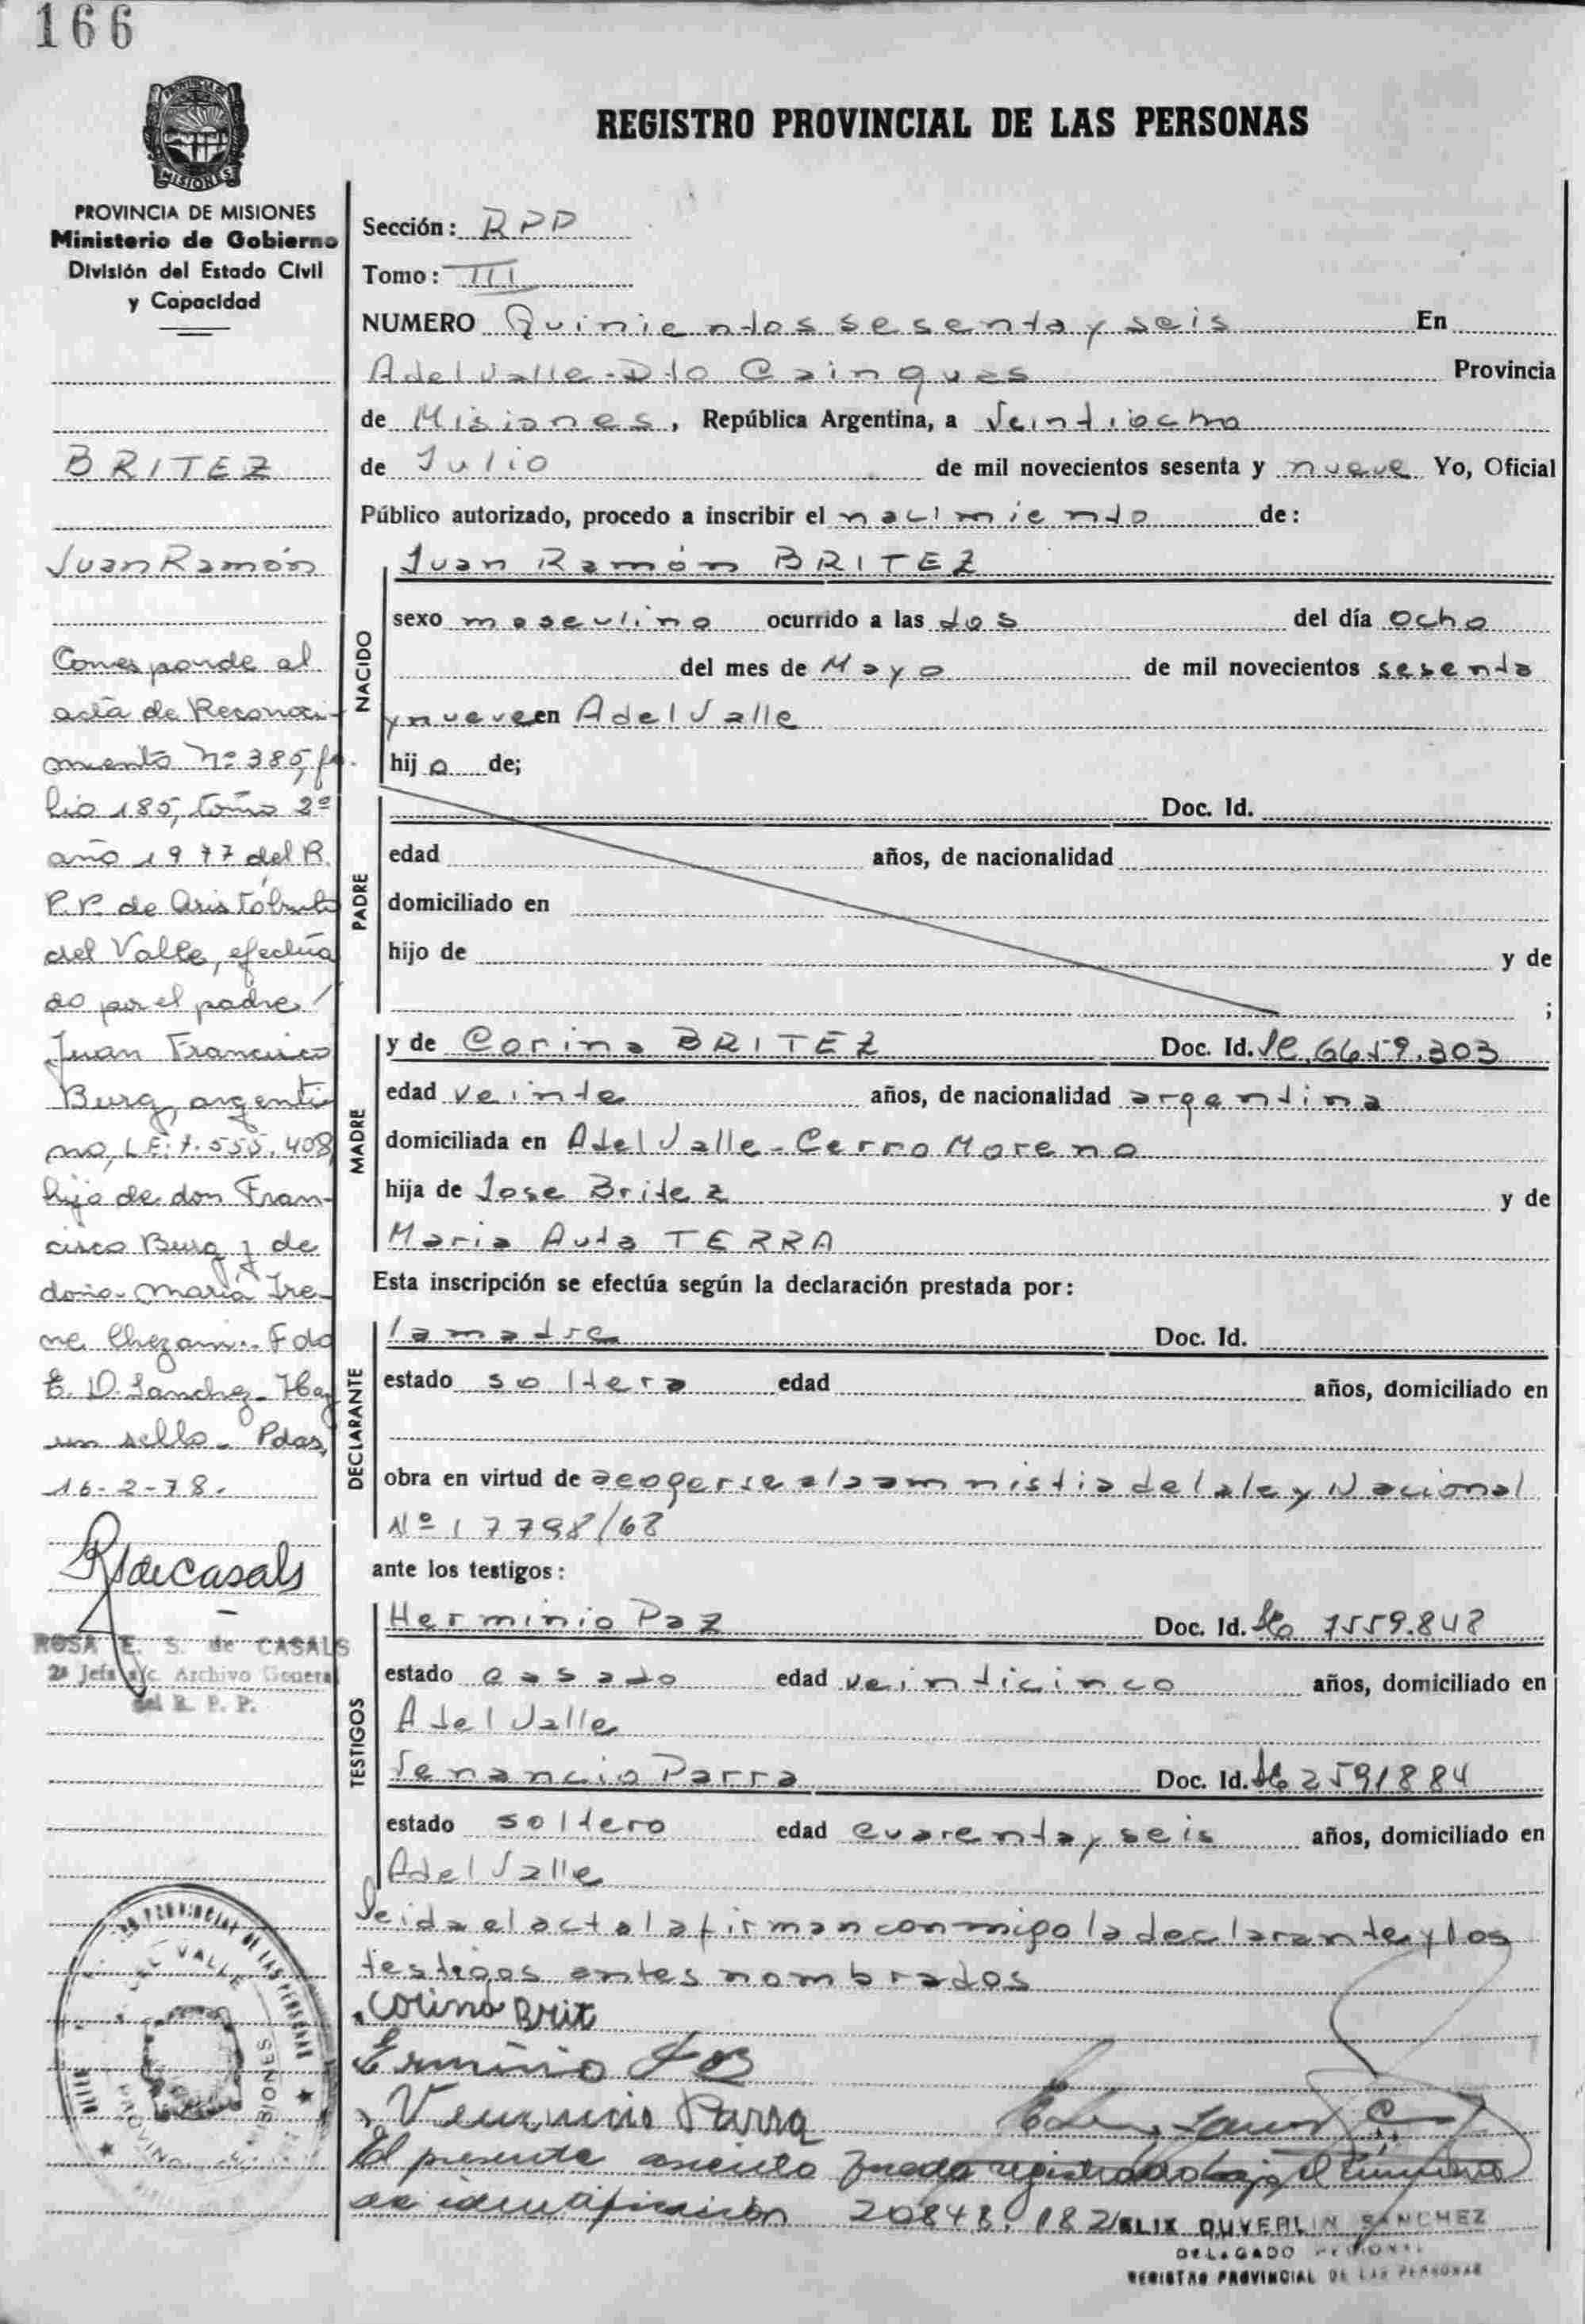 166
REGISTRO PROVINCIAL DE LAS PERSONAS
PROVINCIA DE MISIONES
MISIONES
PROVINCIA DE MISIONES
Ministerio de Gobierno
División del Estado Civil
y Capacidad
BRITEZ
Juan Ramón
Corresponde al
acta de Reconoci-
miento Nº 385, fo-
lio 185, tomo 2º
año 1977 del R.
P.P. de Aristóbulo
del Valle, efectua
do por el padre
Juan Francisco
Burg, argenti
no, L.E: 7.555.408
hijo de don Fran-
cisco Burg y de
doña María Ire-
ne Fdo
E. D. Sanchez. Hay
un sello. Pdas,
16-2-78.
RSdeCasals
ROSA E. S. de CASALS
2ª Jefa a/c. Archivo General
del R. P. P.
Sección: RPP
Tomo: III
NUMERO Quinientos sesenta y seis En
A del Valle - Dto Cainguas Provincia
de Misiones, República Argentina, a Veintiocho
de Julio de mil novecientos sesenta y nueve Yo, Oficial
Público autorizado, procedo a inscribir el nacimiento de:
NACIDO
Juan Ramón BRITEZ
sexo masculino ocurrido a las dos del día ocho
del mes de Mayo de mil novecientos sesenta
y nueve en A del Valle
hijo de;
PADRE
Doc. Id.
edad años, de nacionalidad
domiciliado en
hijo de y de
;
MADRE
y de Corina BRITEZ Doc. Id. 6659.303
edad veinte años, de nacionalidad argentina
domiciliada en A del Valle - Cerro Moreno
hija de Jose Britez y de
Maria Auta TERRA
Esta inscripción se efectúa según la declaración prestada por:
DECLARANTE
la madre Doc. Id.
estado soltera edad años, domiciliado en
obra en virtud de acogerse a la amnistia de la ley Nacional
Nº 17798/68
ante los testigos:
TESTIGOS
Herminio Paz Doc. Id. 7559.848
estado casado edad veinticinco años, domiciliado en
A del Valle
Venancio Parra Doc. Id. 2591884
estado soltero edad cuarenta y seis años, domiciliado en
A del Valle
Leida el acta la firman conmigo la declarante y los
testigos antes nombrados
Corina Brit
Erminio
Venancio Parra
El presente queda registrado bajo el numero
de identificación 20843.182
FELIX DUVERLIN SANCHEZ
DELEGADO REGIONAL
REGISTRO PROVINCIAL DE LAS PERSONAS
PROVINCIAL DE LAS PERSONAS
DEL VALLE
MISIONES